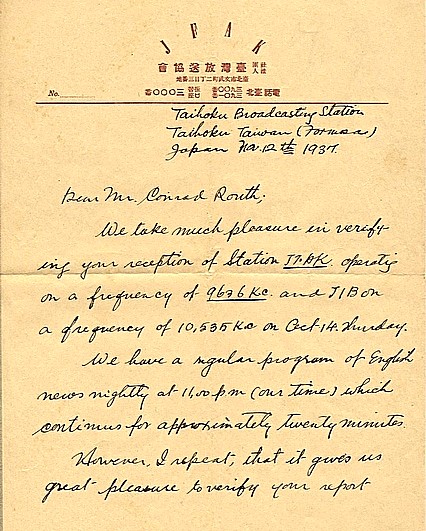 JFAK
社団法人 臺灣放送協會
臺北市文武町二丁目三番地
No.
電話臺北
Taihoku Broadcasting Station
Taihoku Taiwan (Formosa)
Japan Nov. 12th 1937.
Dear Mr. Conrad Routh;
We take much pleasure in verify-
ing your reception of Station JFAK. operating
on a frequency of 9636 Kc. and JIB on
a frequency of 10,535 Kc on Oct 14. Thursday.
We have a regular program of English
news nightly at 11,00 pm (our time) which
continues for approximately twenty minutes.
However, I repeat, that it gives us
great pleasure to verify your report